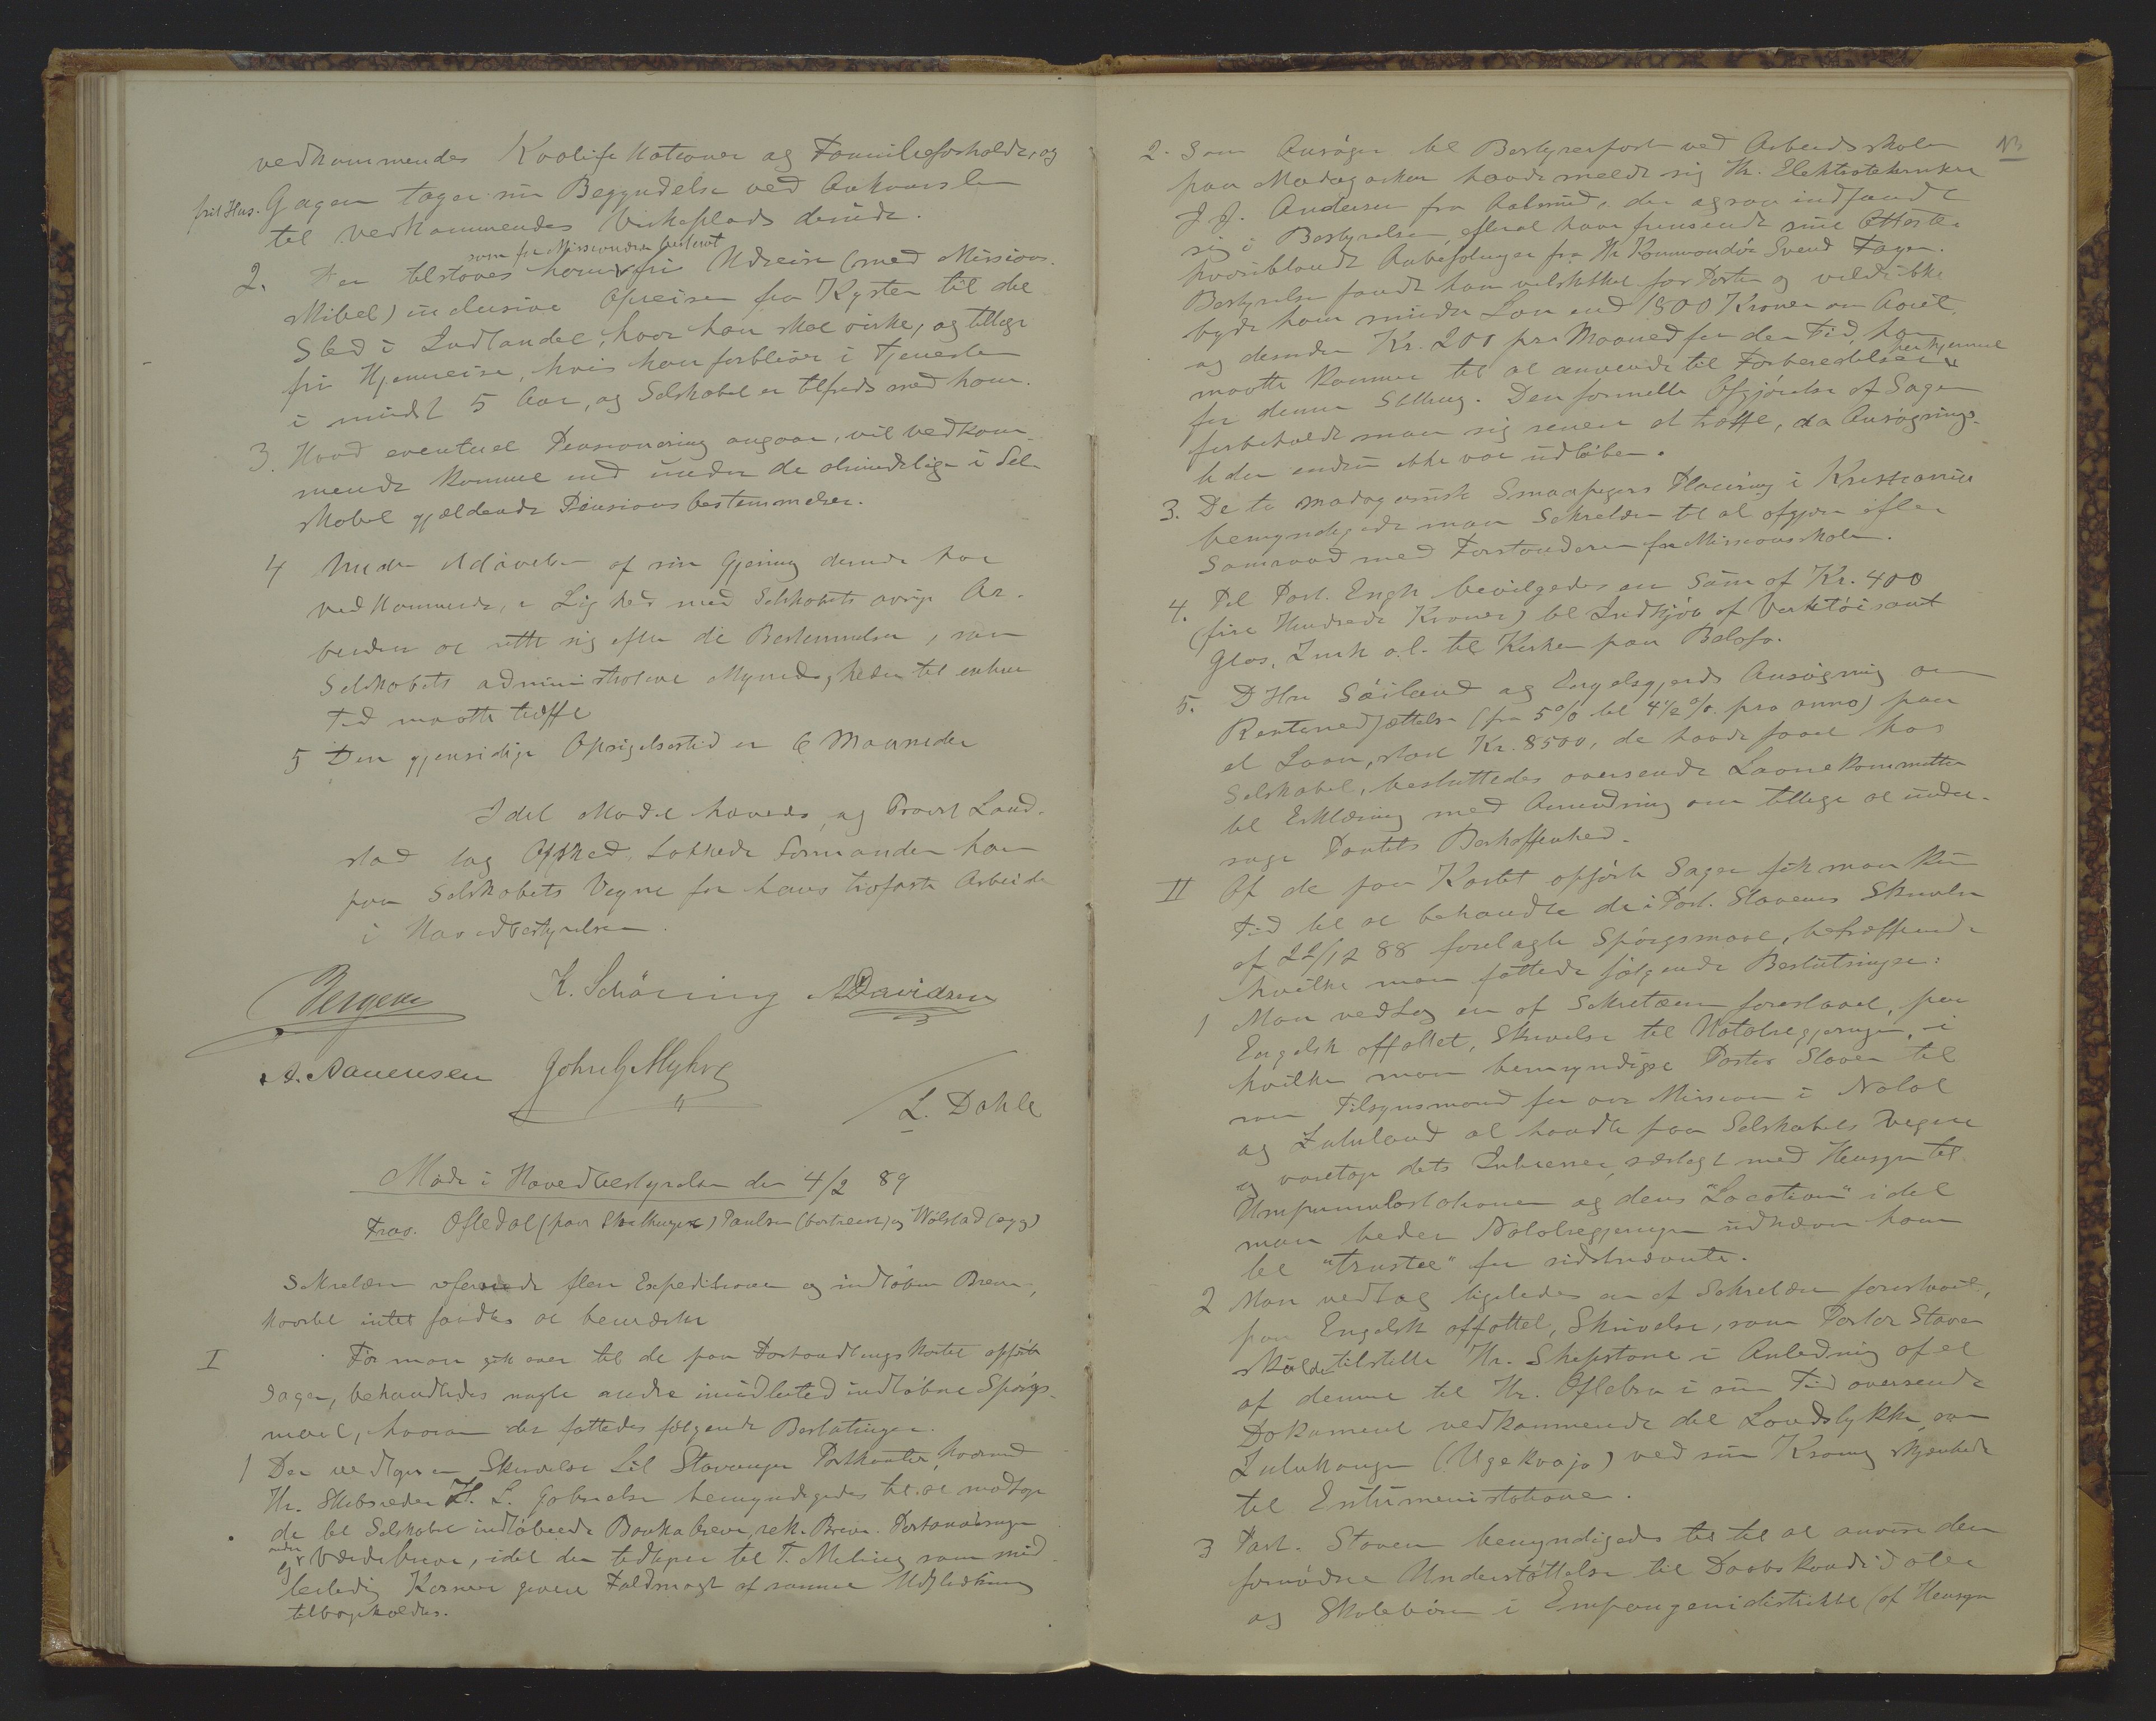 vedkommendes Kvalifikationer og Familieforholde, og
frit Hus. Gagen tager sin Begyndelse ved Ankomsten
til vedkommendes Virkeplads derude.
2. Der tilstaaes ham som for Missionærer bestemt fri Udreise (med Missions-
skibet) inclusive Opreisen fra Kysten til det
Sted i Indlandet, hvor han skal virke, og tillige
fri Hjemreise, hvis han forbliver i Tjenesten
i mindst 5 Aar, og Selskabet er tilfreds med ham.
3. Hvad eventuel Pensionering angaar, vil vedkom-
mende komme ind under de almindelige i Sel-
skabet gjældende Pensionsbestemmelser.
4 Under Udøvelsen af sin Gjerning derude har
vedkommende, i Lighed med Selskabets øvrige Ar-
beidere at rette sig efter de Bestemmelser, som
Selskabets administrative Myndigheder til enhver
Tid maatte træffe
5 Den gjensidige Opsigelsestid er 6 Maaneder
Idet Mødet hævedes, og Provst Land-
stad tog Afsked, takkede Formanden ham
paa Selskabets Vegne for hans trofaste Arbeide
i Hovedbestyrelsen.
Bergem K. Schöning Davidsen
A. Aanensen John G Myhre
L. Dahle
Møde i Hovedbestyrelsen den 4/2 89
Frav. Oftedal (paa Storthinget) Paulsen (bortreist) og Wølstad (syg)
Sekretæren refererede flere Expeditioner og indløbne Breve,
hvortil intet fandtes at bemærke
I Før man gik over til de paa Forhandlingskartet opførte
Sager, behandledes nogle andre imidlertid indløbne Spørgs-
maal, hvorom der fattedes følgende Beslutninger.
1 Der vedtoges en Skrivelse til Stavanger Postkontor, hvormed
Hr. Skibsreder H. L. Gabrielsen bemyndigedes til at modtage
de til Selskabet indløbende Bankobreve, rek. Breve. Postanvisninger
og andre Værdibreve, idet den tidligere til T. Meling som mid-
lertidig Kasserer givne Fuldmagt at samme Udfærdigelse
tilbagekaldes.
2. Som Ansøger til Bestyrerpost ved Arbeidsskolen
paa Madagaskar havde meldt sig Hr. Elektrotekniker
J. J. Andersen fra Aalesund, der ogsaa indfandt
sig i Bestyrelsen, efterat have fremsendt sine Attester
hvoriblandt Anbefalinger fra Hr Kommandør Svend Foyen.
Bestyrelsen fandt ham velskikket for Posten og vilde ikke
byde ham mindre Løn end 1800 Kroner om Aaret,
og desuden Kr. 200 pr. Maaned for den Tid, han
maatte komme til at anvende til Forberedelser herhjemme
for denne Stilling. Den formelle Afgjørelse af Sagen
forbeholdt man sig senere at træffe, da Ansøgnings-
tiden endnu ikke var udløben.
3. De to madagassiske Smaapigers Placering i Kristiania
bemyndigede man Sekretæren til at afgjøre efter
Samraad med Forstanderen for Missionsskolen.
4. Til Past. Engh bevilgedes en Sum af Kr. 400
(fire Hundrede Kroner) til Indkjøb af Verktøi samt
Glas, Zink o.l. til Kirken paa Betafo.
5. D Hrr Søiland og Engelsgjerds Ansøgning om
Rentenedsættelse (fra 5% til 4½% pro anno) paa
et Laan, stort Kr. 8500, de havde faaet hos
Selskabet, besluttedes oversendt Laanekommitteen
til Erklæring med Anmodning om tillige at under-
søge Pantets Beskaffenhed.
II Af de paa Kartet opførte Sager fik man kun
Tid til at behandle de i Past. Stavems Skrivelse
af 22/12 88 forelagte Spørgsmaal, betræffende
hvilke man fattede følgende Beslutninger:
1 Man vedtog en af Sekretæren foreslaaet, paa
Engelsk affattet, Skrivelse til Natalregjeringen, i
hvilken man bemyndiger Pastor Stavem til
som Tilsynsmand for vor Mission i Natal
og Zululand at handle paa Selskabets Vegne
og varetage dets Interesser, særligt med Hensyn til
Umpumulostationen og dens "Location" idet
man beder Natalregjeringen udnævne ham
til "trustee" for sidstnævnte.
2 Man vedtog ligeledes en af Sekretæren foreslaaet,
paa Engelsk affattet, Skrivelse, som Pastor Stavem
skulde tilstille Hr. Shepstone i Anledning af et
af denne til Hr. Oftebro i sin Tid oversendt
Dokument vedkommende det Landstykke, som
Zulukongen (Ugekvajo) ved sin Kroning skjænkede
til Entumenistationen.
3 Past. Stavem bemyndigedes til at anvise den
fornødne Understøttelse til Daabskandidater
og Skolebørn i Empangenidistriktet (af Hensyn